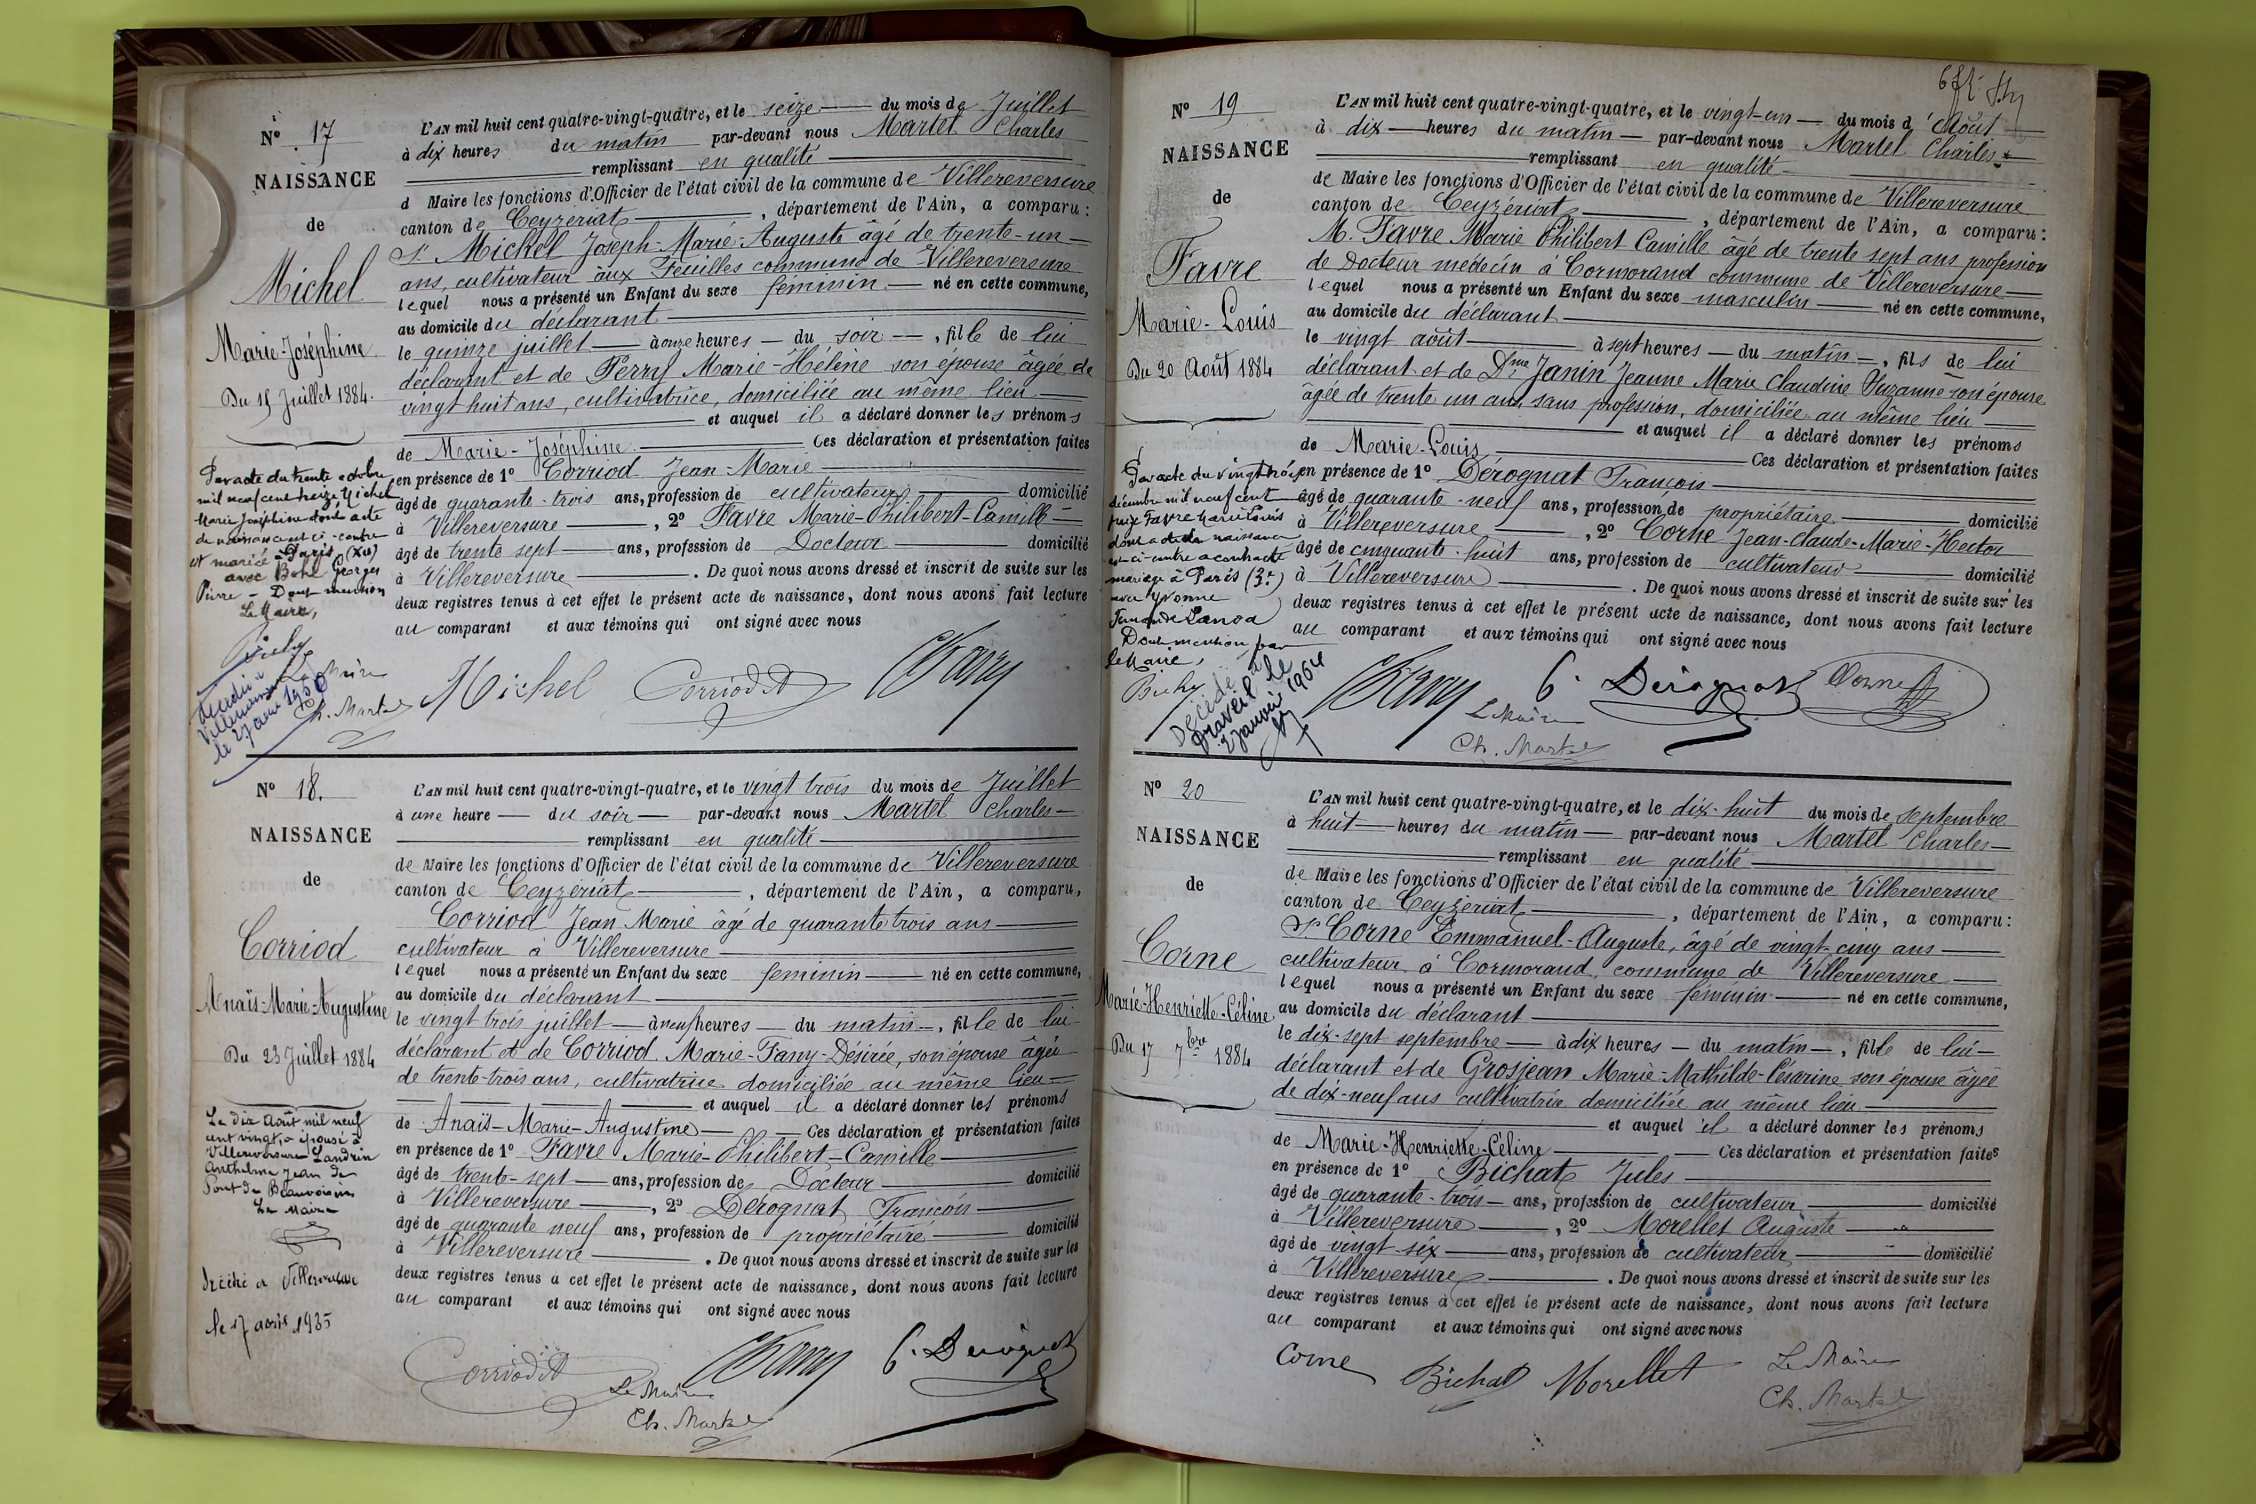 Nº 17
NAISSANCE
de
Michel
Marie-Joséphine
Du 15 Juillet 1884.
Par acte du trente octobre
mil neuf cent treize Michel
Marie Joséphine dont acte
de naissance est ci-contre
a marié à Paris (XV)
avec Georges
Pierre - Dont mention
Le Maire,
Bichy
décédée à
le 27 1950
L'AN mil huit cent quatre-vingt-quatre, et le seize du mois de Juillet
à dix heures du matin par-devant nous Martel Charles
remplissant en qualité
d Maire les fonctions d'Officier de l'état civil de la commune de Villereversure
canton de Ceyzériat, département de l'Ain, a comparu :
Sr Michel Joseph-Marie-Auguste âgé de trente-un
ans, cultivateur aux Feuilles commune de Villereversure
lequel nous a présenté un Enfant du sexe féminin né en cette commune,
au domicile du déclarant
le quinze juillet à onze heures du soir, fille de lui
déclarant et de Perruf Marie-Hélène son épouse âgée de
vingt huit ans, cultivatrice, domiciliée au même lieu
et auquel il a déclaré donner les prénoms
de Marie-Joséphine Ces déclaration et présentation faites
en présence de 1º Corriod Jean-Marie
âgé de quarante-trois ans, profession de cultivateur domicilié
à Villereversure, 2º Favre Marie-Philibert-Camille
âgé de trente sept ans, profession de Docteur domicilié
à Villereversure. De quoi nous avons dressé et inscrit de suite sur les
deux registres tenus à cet effet le présent acte de naissance, dont nous avons fait lecture
au comparant et aux témoins qui ont signé avec nous
Le Maire
Ch. Martel
Michel
Corriod
CFavre
Nº 18.
NAISSANCE
de
Corriod
Anaïs-Marie-Augustine
Du 23 Juillet 1884
Le dix Août mil neuf
cent vingt, a épousé à
Villereversure Landrin
Anthelme Jean de
Pont de Beauvoisin
Le Maire
Décédé à Villereversure
le 17 avril 1935
L'AN mil huit cent quatre-vingt-quatre, et le vingt trois du mois de Juillet
à une heure du soir par-devant nous Martel Charles
remplissant en qualité
de Maire les fonctions d'Officier de l'état civil de la commune de Villereversure
canton de Ceyzériat, département de l'Ain, a comparu,
Corriod Jean Marie âgé de quarante trois ans
cultivateur à Villereversure
lequel nous a présenté un Enfant du sexe féminin né en cette commune,
au domicile du déclarant
le vingt trois juillet à neuf heures du matin, fille de lui
déclarant et de Corriod Marie-Fany-Désirée, son épouse âgée
de trente-trois ans, cultivatrice domiciliée au même lieu
et auquel il a déclaré donner les prénoms
de Anaïs-Marie-Augustine Ces déclaration et présentation faites
en présence de 1º Favre Marie-Philibert-Camille
âgé de trente-sept ans, profession de Docteur domicilié
à Villereversure, 2º Dérognat François
âgé de quarante neuf ans, profession de propriétaire domicilié
à Villereversure. De quoi nous avons dressé et inscrit de suite sur les
deux registres tenus a cet effet le présent acte de naissance, dont nous avons fait lecture
au comparant et aux témoins qui ont signé avec nous
Corriod
Le Maire
Ch. Martel
CFavre
f. Derognat
Nº 19
NAISSANCE
de
Favre
Marie-Louis
Du 20 Août 1884
Par acte du vingt trois
décembre mil neuf cent
Favre Marie Louis
dont acte de naissance
est ci-contre a contracté
mariage à Paris (3e)
avec Yvonne
Fernande
Dont mention par
le Maire,
Bichy
Décédé à
Draveil le
2 janvier 1964
L'AN mil huit cent quatre-vingt-quatre, et le vingt-un du mois d'Août
à dix heures du matin par-devant nous Martel Charles
remplissant en qualité
de Maire les fonctions d'Officier de l'état civil de la commune de Villereversure
canton de Ceyzériat, département de l'Ain, a comparu :
M. Favre Marie Philibert Camille âgé de trente sept ans profession
de Docteur médecin à Cormorand commune de Villereversure
lequel nous a présenté un Enfant du sexe masculin né en cette commune,
au domicile du déclarant
le vingt août à sept heures du matin, fils de lui
déclarant et de Dme Janin Jeanne Marie Claudine Suzanne son épouse
âgée de trente un ans, sans profession, domiciliée au même lieu
et auquel il a déclaré donner les prénoms
de Marie-Louis Ces déclaration et présentation faites
en présence de 1º Dérognat François
âgé de quarante-neuf ans, profession de propriétaire domicilié
à Villereversure, 2º Corne Jean-Claude-Marie-Hector
âgé de cinquante-huit ans, profession de cultivateur domicilié
à Villereversure. De quoi nous avons dressé et inscrit de suite sur les
deux registres tenus à cet effet le présent acte de naissance, dont nous avons fait lecture
au comparant et aux témoins qui ont signé avec nous
CFavre
Le Maire
Ch. Martel
f. Derognat
Corne
Nº 20
NAISSANCE
de
Corne
Marie-Henriette-Céline
Du 17 7bre 1884
L'AN mil huit cent quatre-vingt-quatre, et le dix-huit du mois de septembre
à huit heures du matin par-devant nous Martel Charles
remplissant en qualité
de Maire les fonctions d'Officier de l'état civil de la commune de Villereversure
canton de Ceyzériat, département de l'Ain, a comparu :
Sr Corne Emmanuel-Auguste, âgé de vingt-cinq ans
cultivateur à Cormorand, commune de Villereversure
lequel nous a présenté un Enfant du sexe féminin né en cette commune,
au domicile du déclarant
le dix-sept septembre à dix heures du matin, fille de lui
déclarant et de Grosjean Marie-Mathilde-Césarine son épouse âgée
de dix-neuf ans cultivatrice domiciliée au même lieu
et auquel il a déclaré donner les prénoms
de Marie-Henriette-Céline Ces déclaration et présentation faites
en présence de 1º Bichat Jules
âgé de quarante-trois ans, profession de cultivateur domicilié
à Villereversure, 2º Morellet Auguste
âgé de vingt-six ans, profession de cultivateur domicilié
à Villereversure. De quoi nous avons dressé et inscrit de suite sur les
deux registres tenus à cet effet le présent acte de naissance, dont nous avons fait lecture
au comparant et aux témoins qui ont signé avec nous
Corne
Bichat
Morellet
Le Maire
Ch. Martel